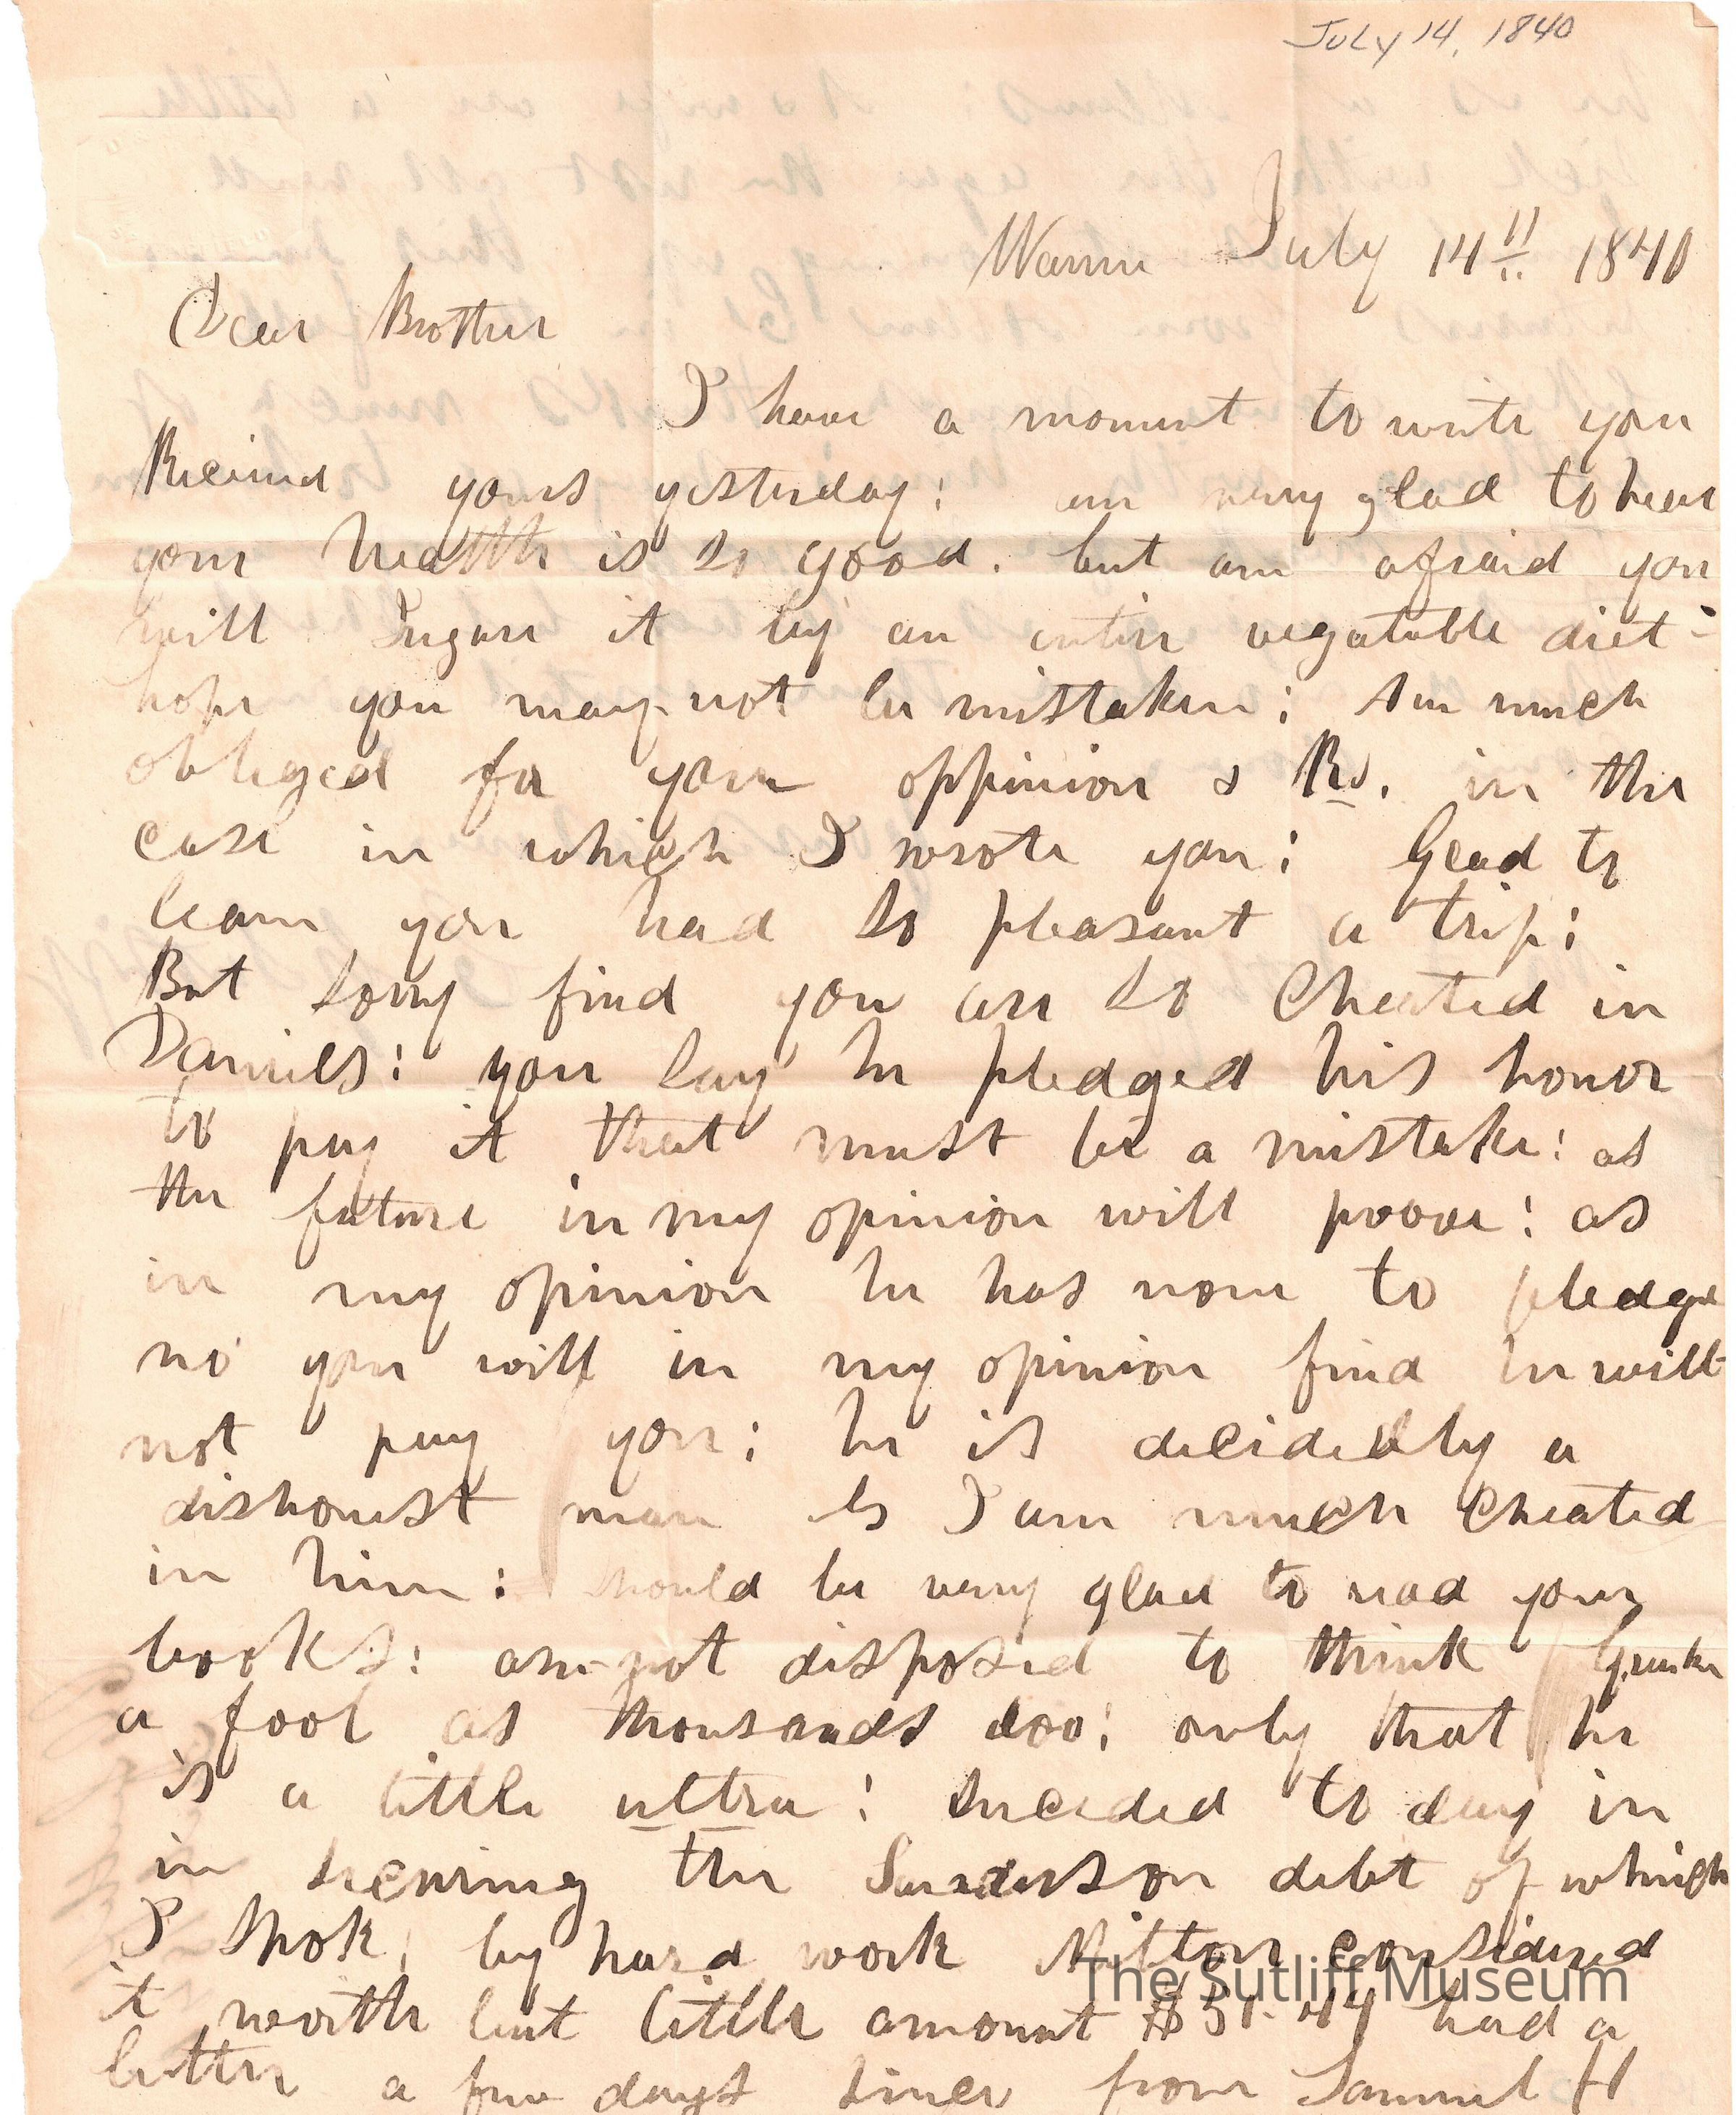 July 14, 1840
Warren July 14" 1840
Dear Brother
I have a moment to write you
Recieved yours yesterday: am very glad to hear
your health is so good. but am afraid you
will Ingure it by an entire vegatable diet -
hope you may not be mistaken: Am much
obliged for your oppinion & Rs. in the
case in which I wrote you: Glad to
learn you had so pleasant a trip:
But sorry find you are so Cheated in
Daniels: you say he pledged his honor
to pay it that must be a mistake: as
the future in my opinion will proove: as
in my opinion he has none to pledge
no you will in my opinion find he will
not pay you: he is decidedly a
dishonest man Is I am much Cheated
in him: should be very glad to read your
books: am not disposed to think
a fool as thousands doo: only that he
is a little ultra: Suceded to day in
in securing the Sanderson debt of which
I Spok, by hard work Milton considered
it worth but little amount $51.44 had a
letter a few days since from Samuel H
The Sutliff Museum